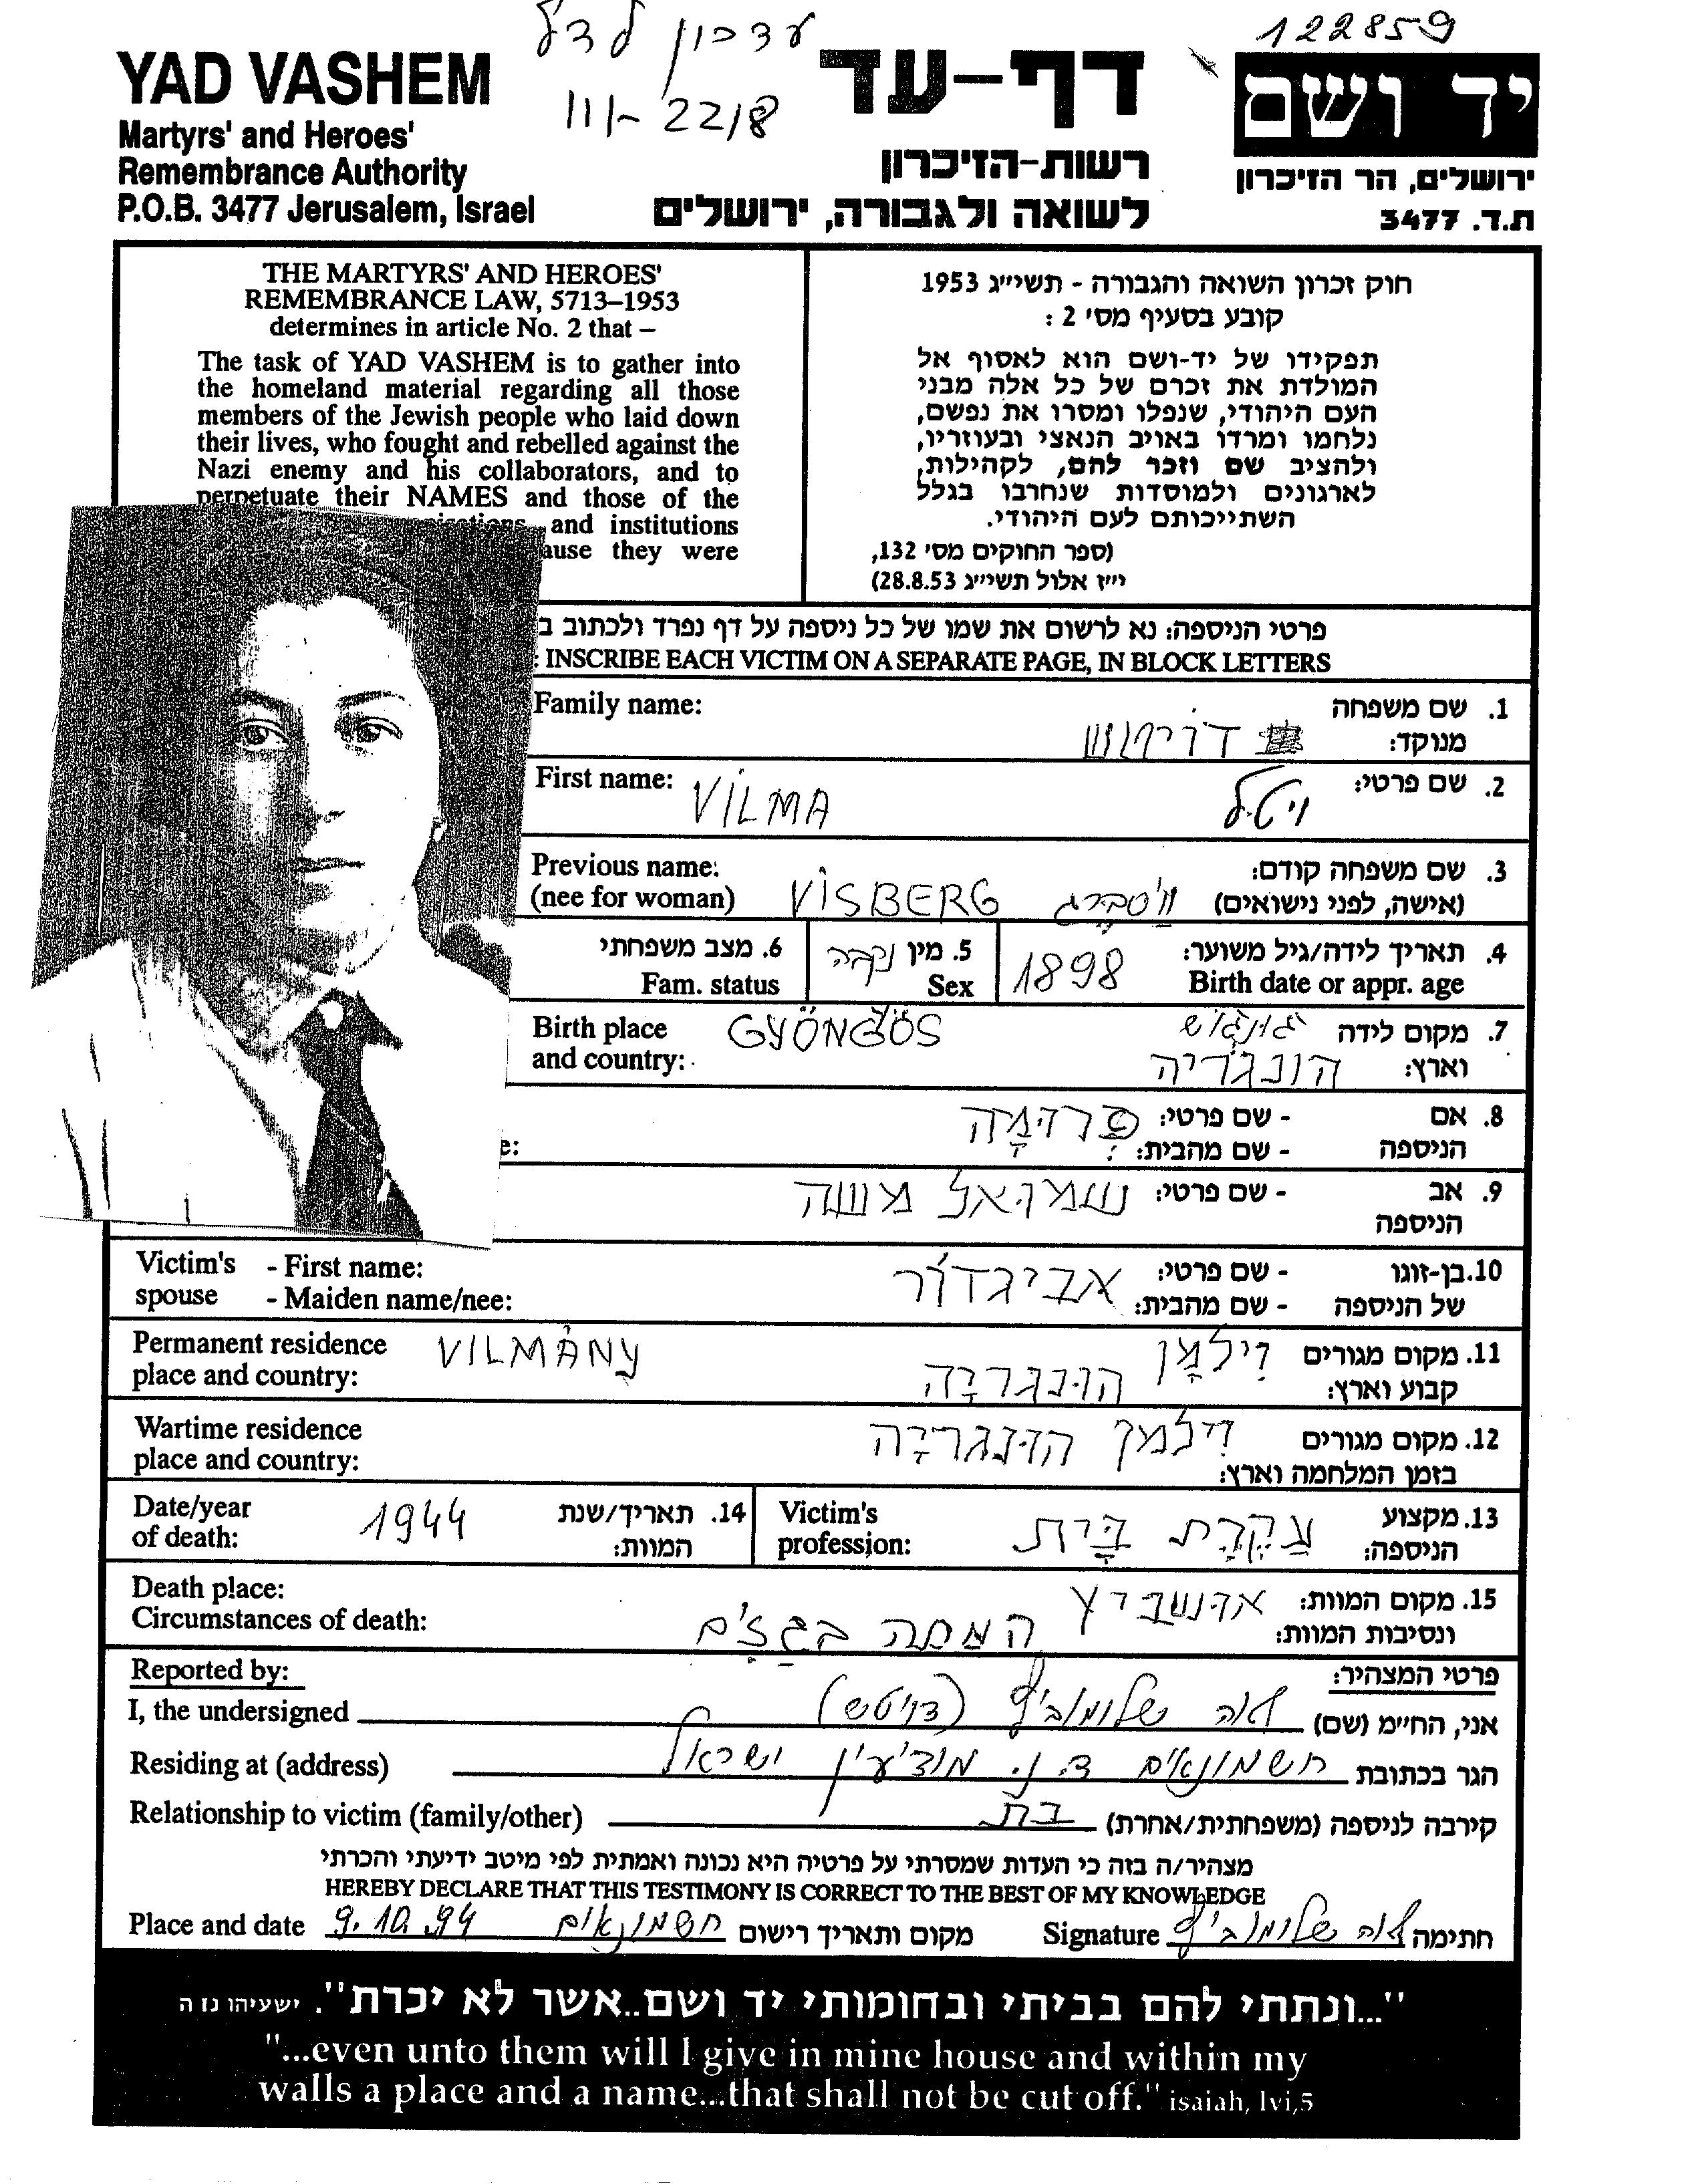 עדכון לדף
122859
111-2218
YAD VASHEM
Martyrs' and Heroes'
Remembrance Authority
P.O.B. 3477 Jerusalem, Israel
דף-עד
רשות-הזיכרון
לשואה ולגבורה, ירושלים
יד ושם
ירושלים, הר הזיכרון
ת.ד. 3477
THE MARTYRS' AND HEROES'
REMEMBRANCE LAW, 5713–1953
determines in article No. 2 that –
The task of YAD VASHEM is to gather into
the homeland material regarding all those
members of the Jewish people who laid down
their lives, who fought and rebelled against the
Nazi enemy and his collaborators, and to
perpetuate their NAMES and those of the
and institutions
ause they were
חוק זכרון השואה והגבורה - תשי״ג 1953
קובע בסעיף מס׳ 2 :
תפקידו של יד-ושם הוא לאסוף אל
המולדת את זכרם של כל אלה מבני
העם היהודי, שנפלו ומסרו את נפשם,
נלחמו ומרדו באויב הנאצי ובעוזריו,
ולהציב שם וזכר להם, לקהילות,
לארגונים ולמוסדות שנחרבו בגלל
השתייכותם לעם היהודי.
(ספר החוקים מס׳ 132,
י״ז אלול תשי״ג 28.8.53)
פרטי הניספה: נא לרשום את שמו של כל ניספה על דף נפרד ולכתוב ב
: INSCRIBE EACH VICTIM ON A SEPARATE PAGE, IN BLOCK LETTERS
Family name: דויטש 1. שם משפחה
מנוקד:
First name: VILMA ויטל 2. שם פרטי:
Previous name: 3. שם משפחה קודם:
(nee for woman) VISBERG וַיסבֶּרג (אישה, לפני נישואים)
6. מצב משפחתי 5. מין נקבה 4. תאריך לידה/גיל משוער:
Fam. status Sex 1898 Birth date or appr. age
Birth place GYÖNGÖS 7. מקום לידה
and country: הונגריה וארץ:
8. אם - שם פרטי: פְרוּמָה
e: הניספה - שם מהבית: ?
9. אב - שם פרטי: שמואל משה
הניספה
Victim's - First name: 10. בן-זוגו - שם פרטי: אביגדור
spouse - Maiden name/nee: של הניספה - שם מהבית:
Permanent residence VILMÁNY 11. מקום מגורים וִילמָן
place and country: קבוע וארץ: הונגריָה
Wartime residence 12. מקום מגורים וִילמן הונגריָה
place and country: בזמן המלחמה וארץ:
Date/year 1944 14. תאריך/שנת Victim's 13. מקצוע עֲקֶרֶת בַּיִת
of death: המוות: profession: הניספה:
Death place: 15. מקום המוות: אושביץ
Circumstances of death: ונסיבות המוות: הומתה בגַזִים
Reported by: פרטי המצהיר:
I, the undersigned אני, החי״מ (שם) לאה שלומוביץ (דויטש)
Residing at (address) הגר בכתובת חשמונאים ד.נ. מודיעין ישראל
Relationship to victim (family/other) קירבה לניספה (משפחתית/אחרת) בת
מצהיר/ה בזה כי העדות שמסרתי על פרטיה היא נכונה ואמתית לפי מיטב ידיעתי והכרתי
HEREBY DECLARE THAT THIS TESTIMONY IS CORRECT TO THE BEST OF MY KNOWLEDGE
Place and date 9.10.94 חשמונאים מקום ותאריך רישום Signature לאה שלומוביץ חתימה
"...ונתתי להם בביתי ובחומותי יד ושם..אשר לא יכרת". ישעיהו נו ה
"...even unto them will I give in mine house and within my
walls a place and a name...that shall not be cut off." isaiah, lvi,5